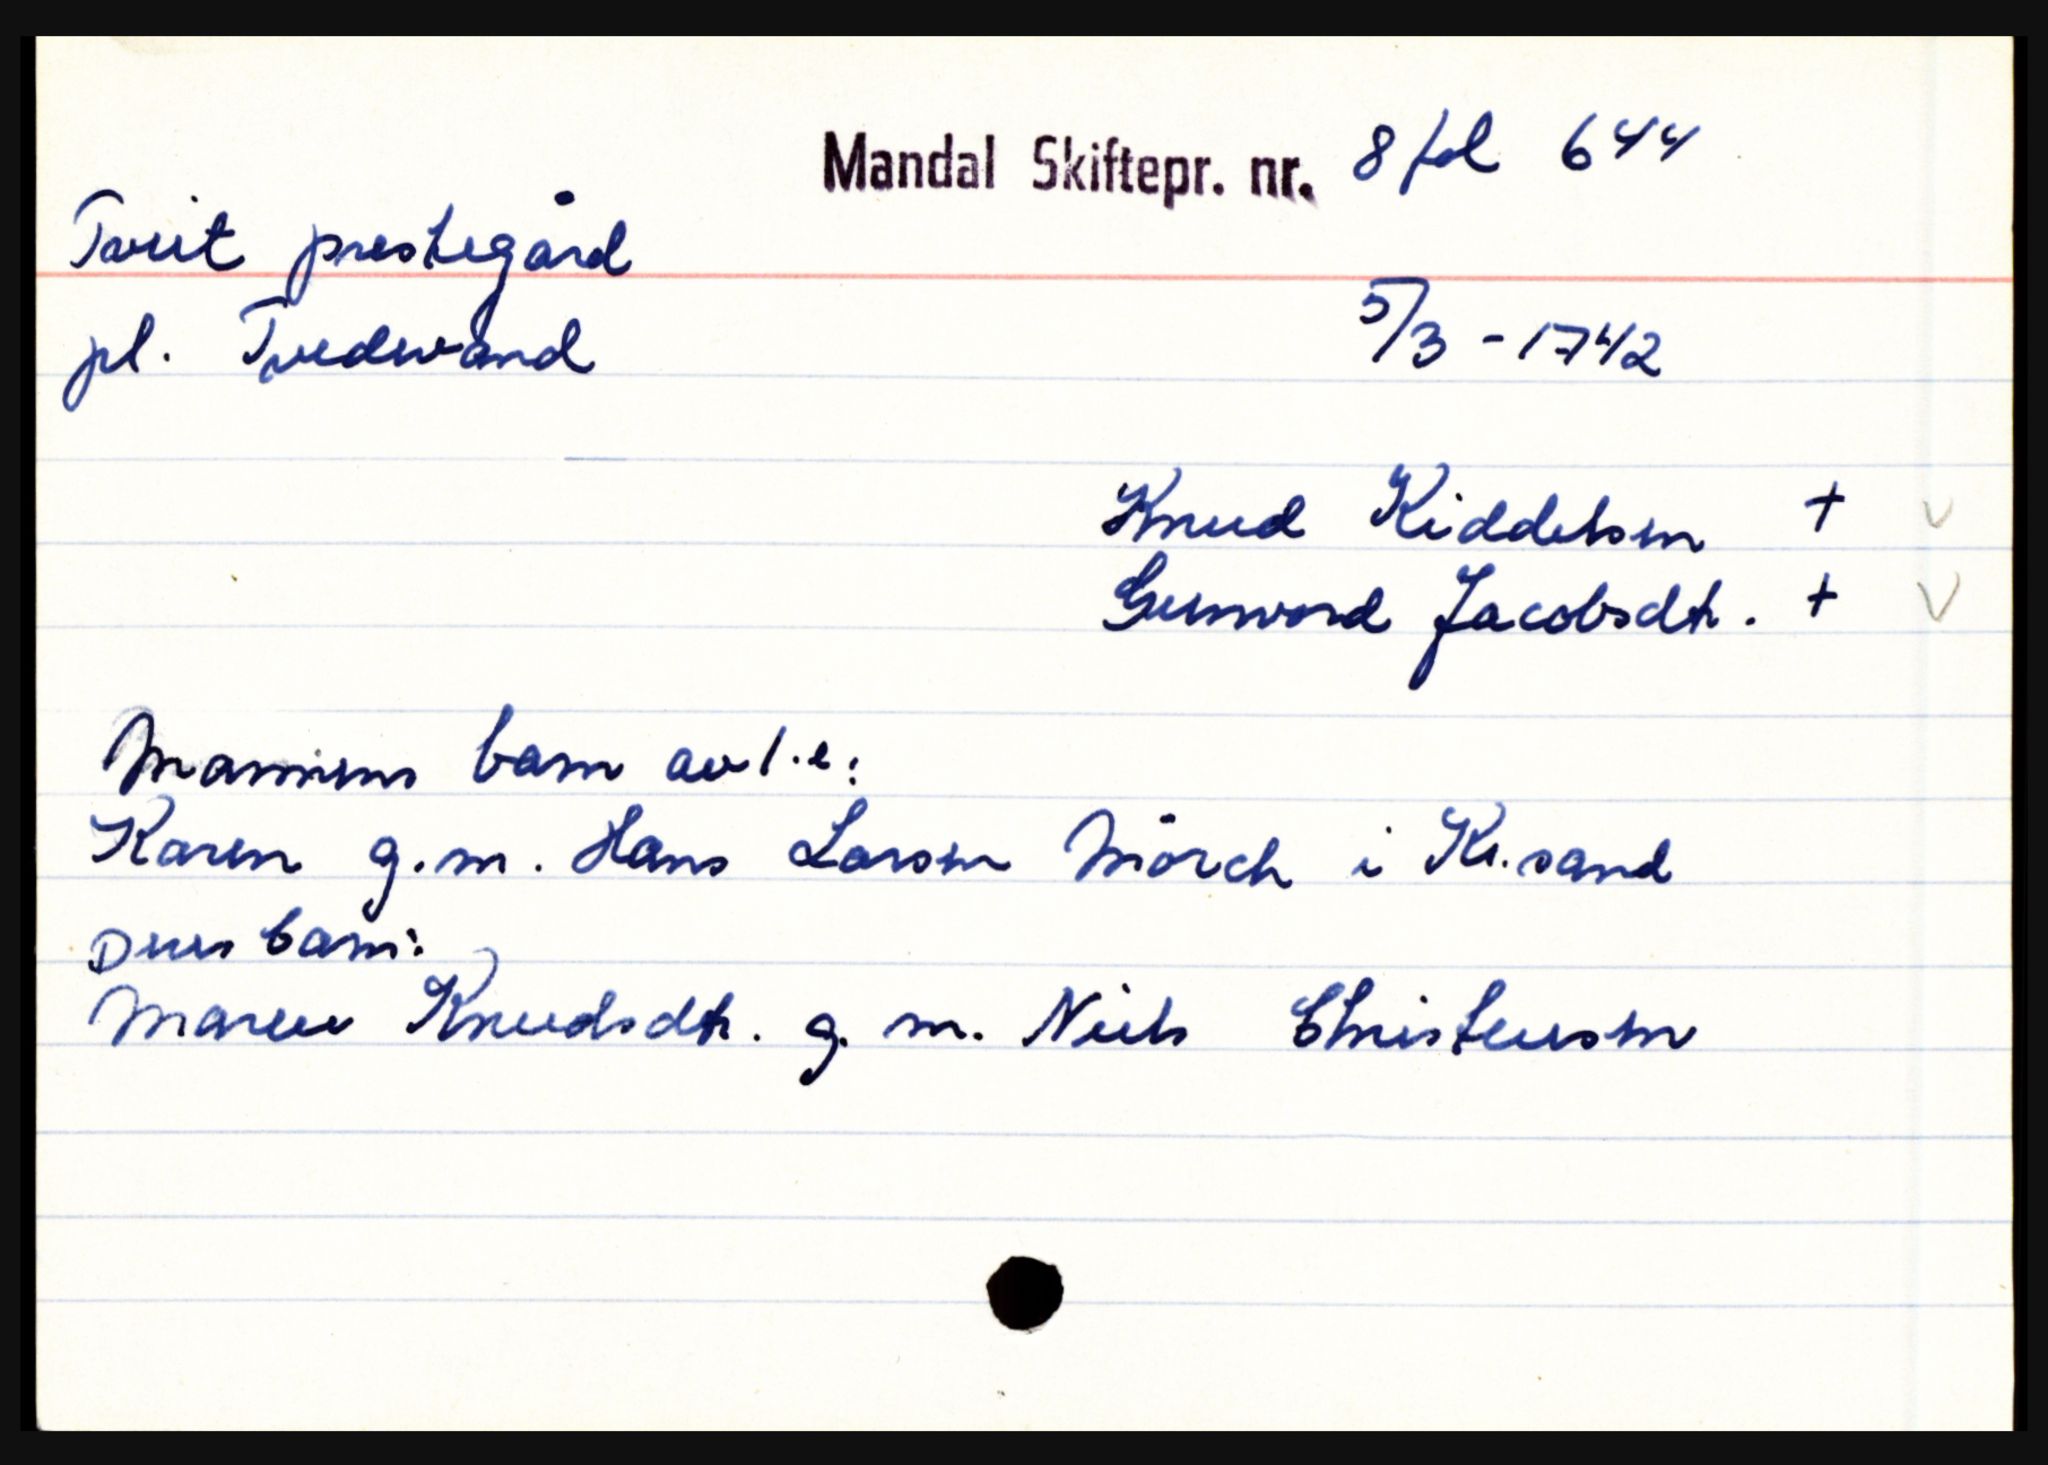 Mandal Skiftepr. nr. 8 fol 644
Tveit prestegård
pl. Tvedevand
5/3 - 1742
Knud Kiddelsen +
Gunvord Jacobsdtr. +
Mannens barn av 1.e:
Karen g.m. Hans Larsen Mörch i Kr.sand
Deres barn:
Maren Knudsdtr. g. m. Niels Christensen